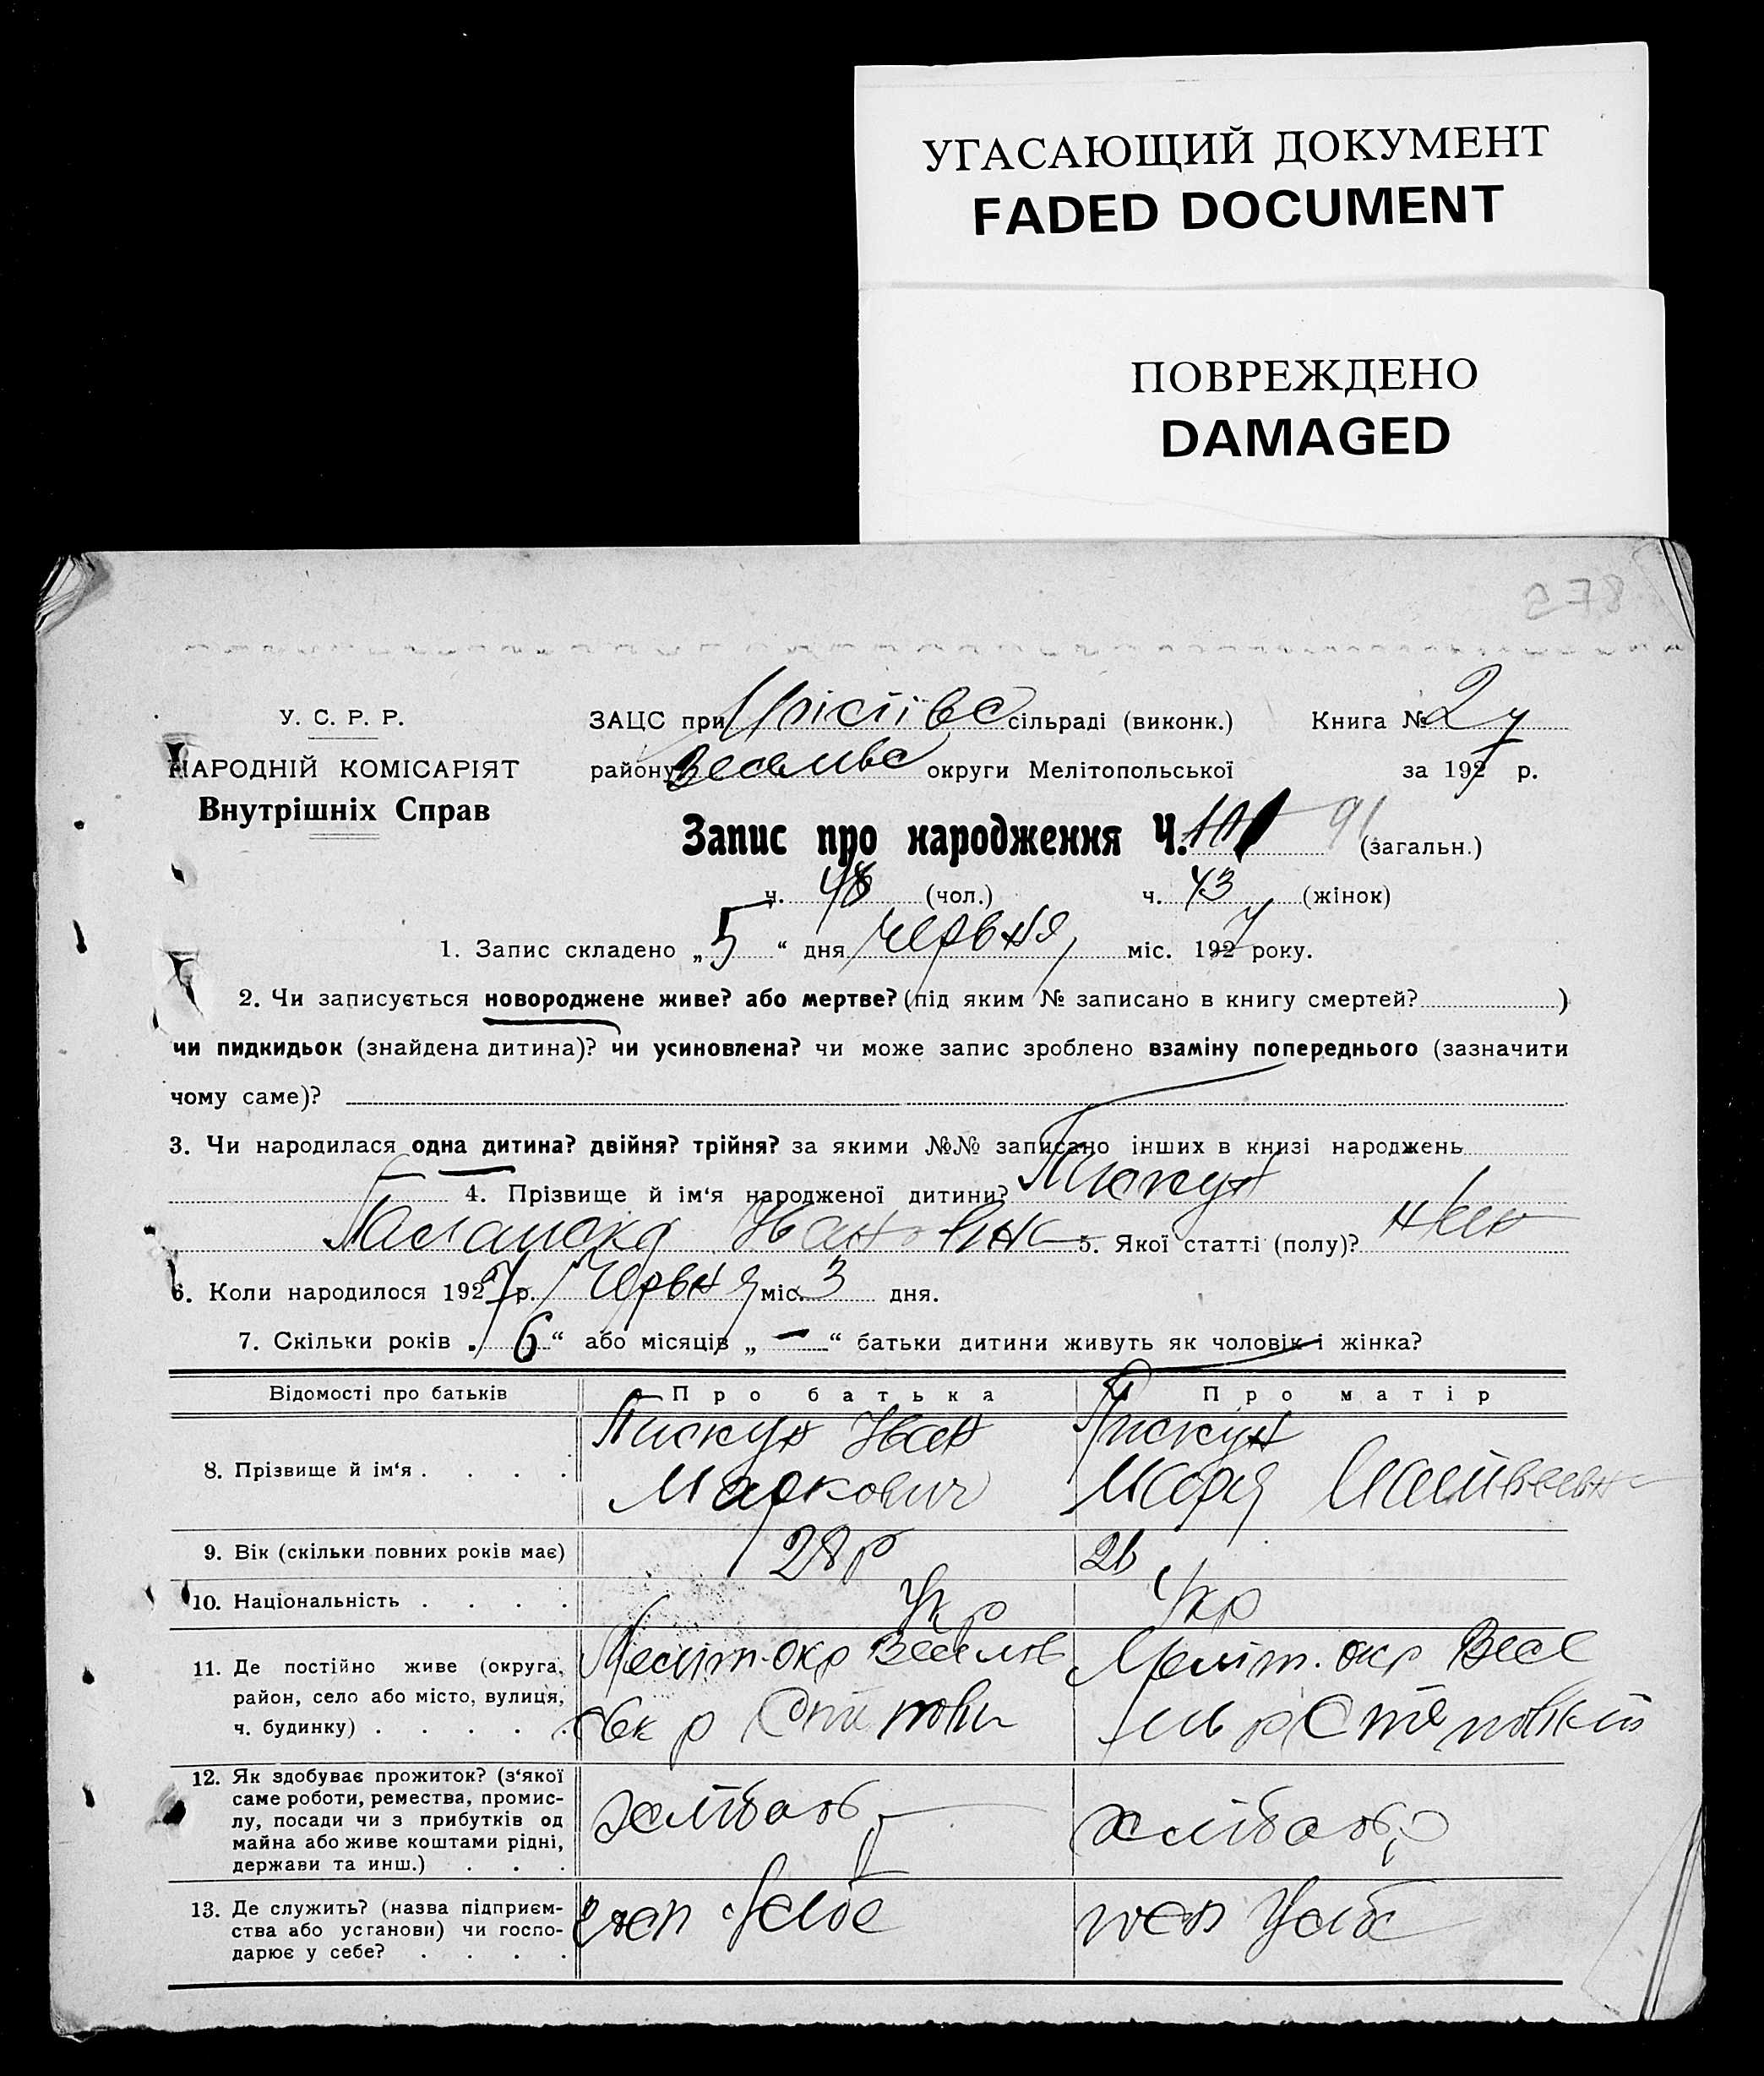 УГАСАЮЩИЙ ДОКУМЕНТ
FADED DOCUMENT
ПОВРЕЖДЕНО
DAMAGED
278
У. С. Р. Р.
НАРОДНІЙ КОМІСАРІЯТ
Внутрішніх Справ
ЗАЦС при сільраді (виконк.) Книга № 2
району округи Мелітопольської за 1927 р.
Запис про народження Ч. 91 (загальн.)
ч. 48 (чол.) ч. 43 (жінок)
1. Запис складено „5“ дня червня міс. 1927 року.
2. Чи записується новороджене живе? або мертве? (під яким № записано в книгу смертей? )
чи пидкидьок (знайдена дитина)? чи усиновлена? чи може запис зроблено взаміну попереднього (зазначити
чому саме)?
3. Чи народилася одна дитина? двійня? трійня? за якими №№ записано інших в книзі народжень
4. Прізвище й ім‘я народженої дитини? Пискун
Палажка Івановна 5. Якої статті (полу)? жін
6. Коли народилося 1927 р. червня міс. 3 дня.
7. Скільки років „6“ або місяців „—“ батьки дитини живуть як чоловік і жінка?
Відомості про батьків Про батька Про матір
8. Прізвище й ім‘я . . . . Пискун Іван Маркович Пискун Марія Матвеевна
9. Вік (скільки повних років має) 28 р 26
10. Національність . . . . Укр Укр
11. Де постійно живе (округа, район, село або місто, вулиця, ч. будинку) . . . . . Меліт. окр Веселов Меліт. окр Весе
12. Як здобуває прожиток? (з‘якої саме роботи, ремества, промислу, посади чи з прибутків од майна або живе коштами рідні, держави та инш.) . . . хлібороб хлібороб
13. Де служить? (назва підприємства або установи) чи господарює у себе? . . . . у себе у себе